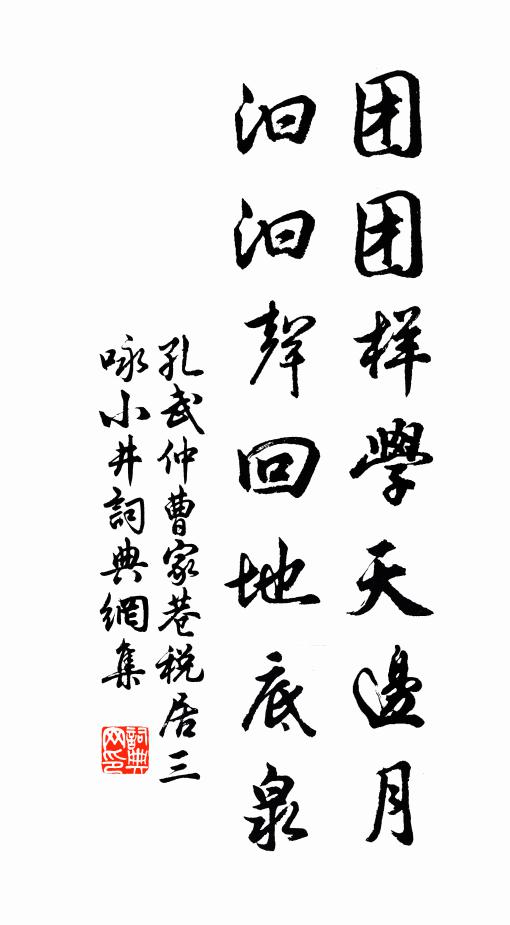 团团样學天邊月
汩汩聲回地底泉
孔武仲曹家巷税居三
咏小井詞典網集
詞典
网印